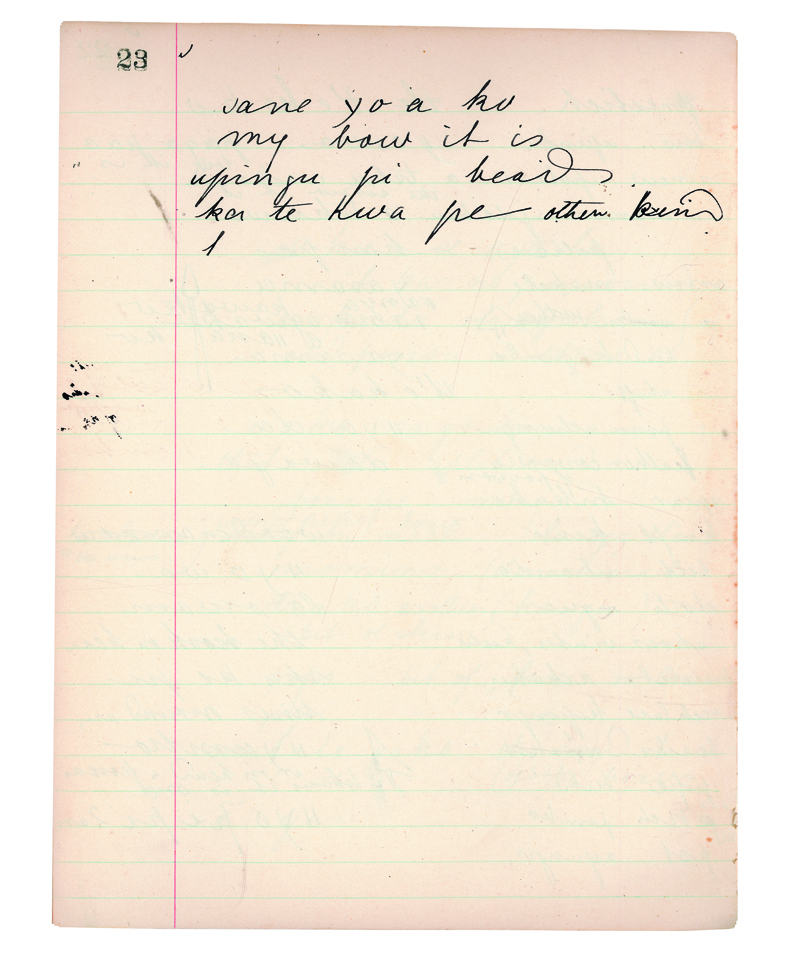 23
sane yo a ko
my bow it is
upingu pi beads
ka te kwa pe other kind
1